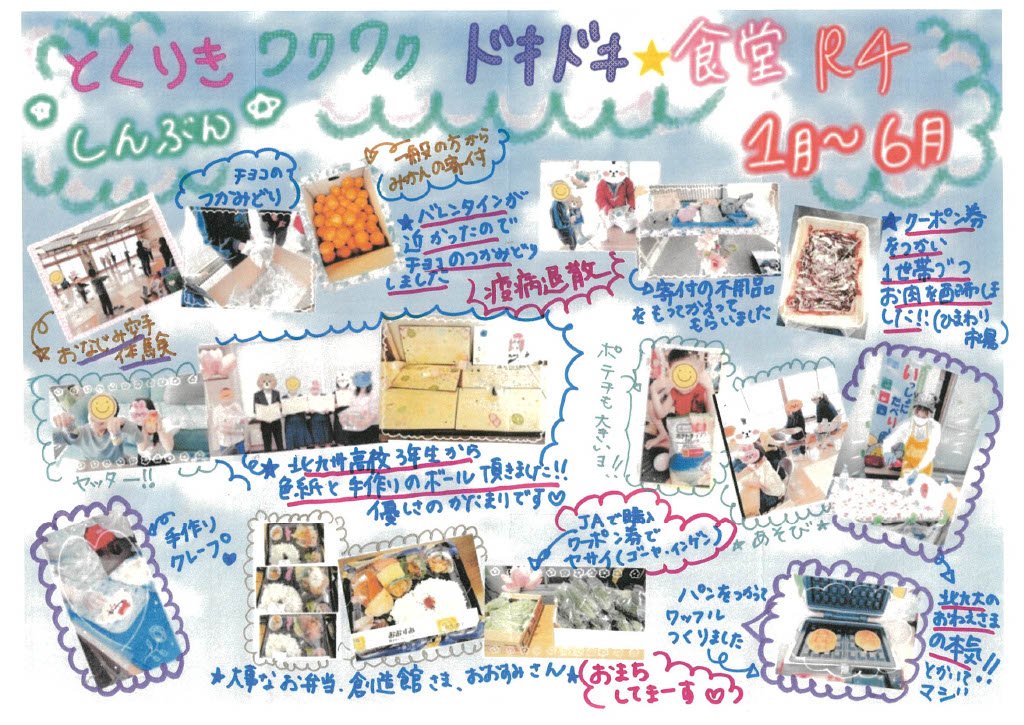 とくりき ワクワク ドキドキ★食堂 R4
しんぶん
1月～6月
チョコの
つかみどり
一般の方から
みかんの寄付
★バレンタインが
近かったので
チョコのつかみどり
しました
疫病退散
寄付の不用品
をもってかえって
もらいました
★クーポン券
をつかい
1世帯づつ
お肉を配布しま
した!!(ひまわり
市場)
★おなじみ空手
体験
ヤッター!!
★北九州高校3年生から
色紙と手作りのボール頂きました!!
優しさのかたまりです♡
ポテチも大きいヨ!!
★あそび★
手作り
クレープ♥
JAで購入
クーポン券で
ヤサイ(ゴーヤ・インゲン)
おおすみ
パンをつかって
ワッフル
つくりました
北九大の
おねえさま
の本気!!
とかいて..
マジ!!
★大事なお弁当、創造館さま、おおすみさん★
おまち
してまーす♡